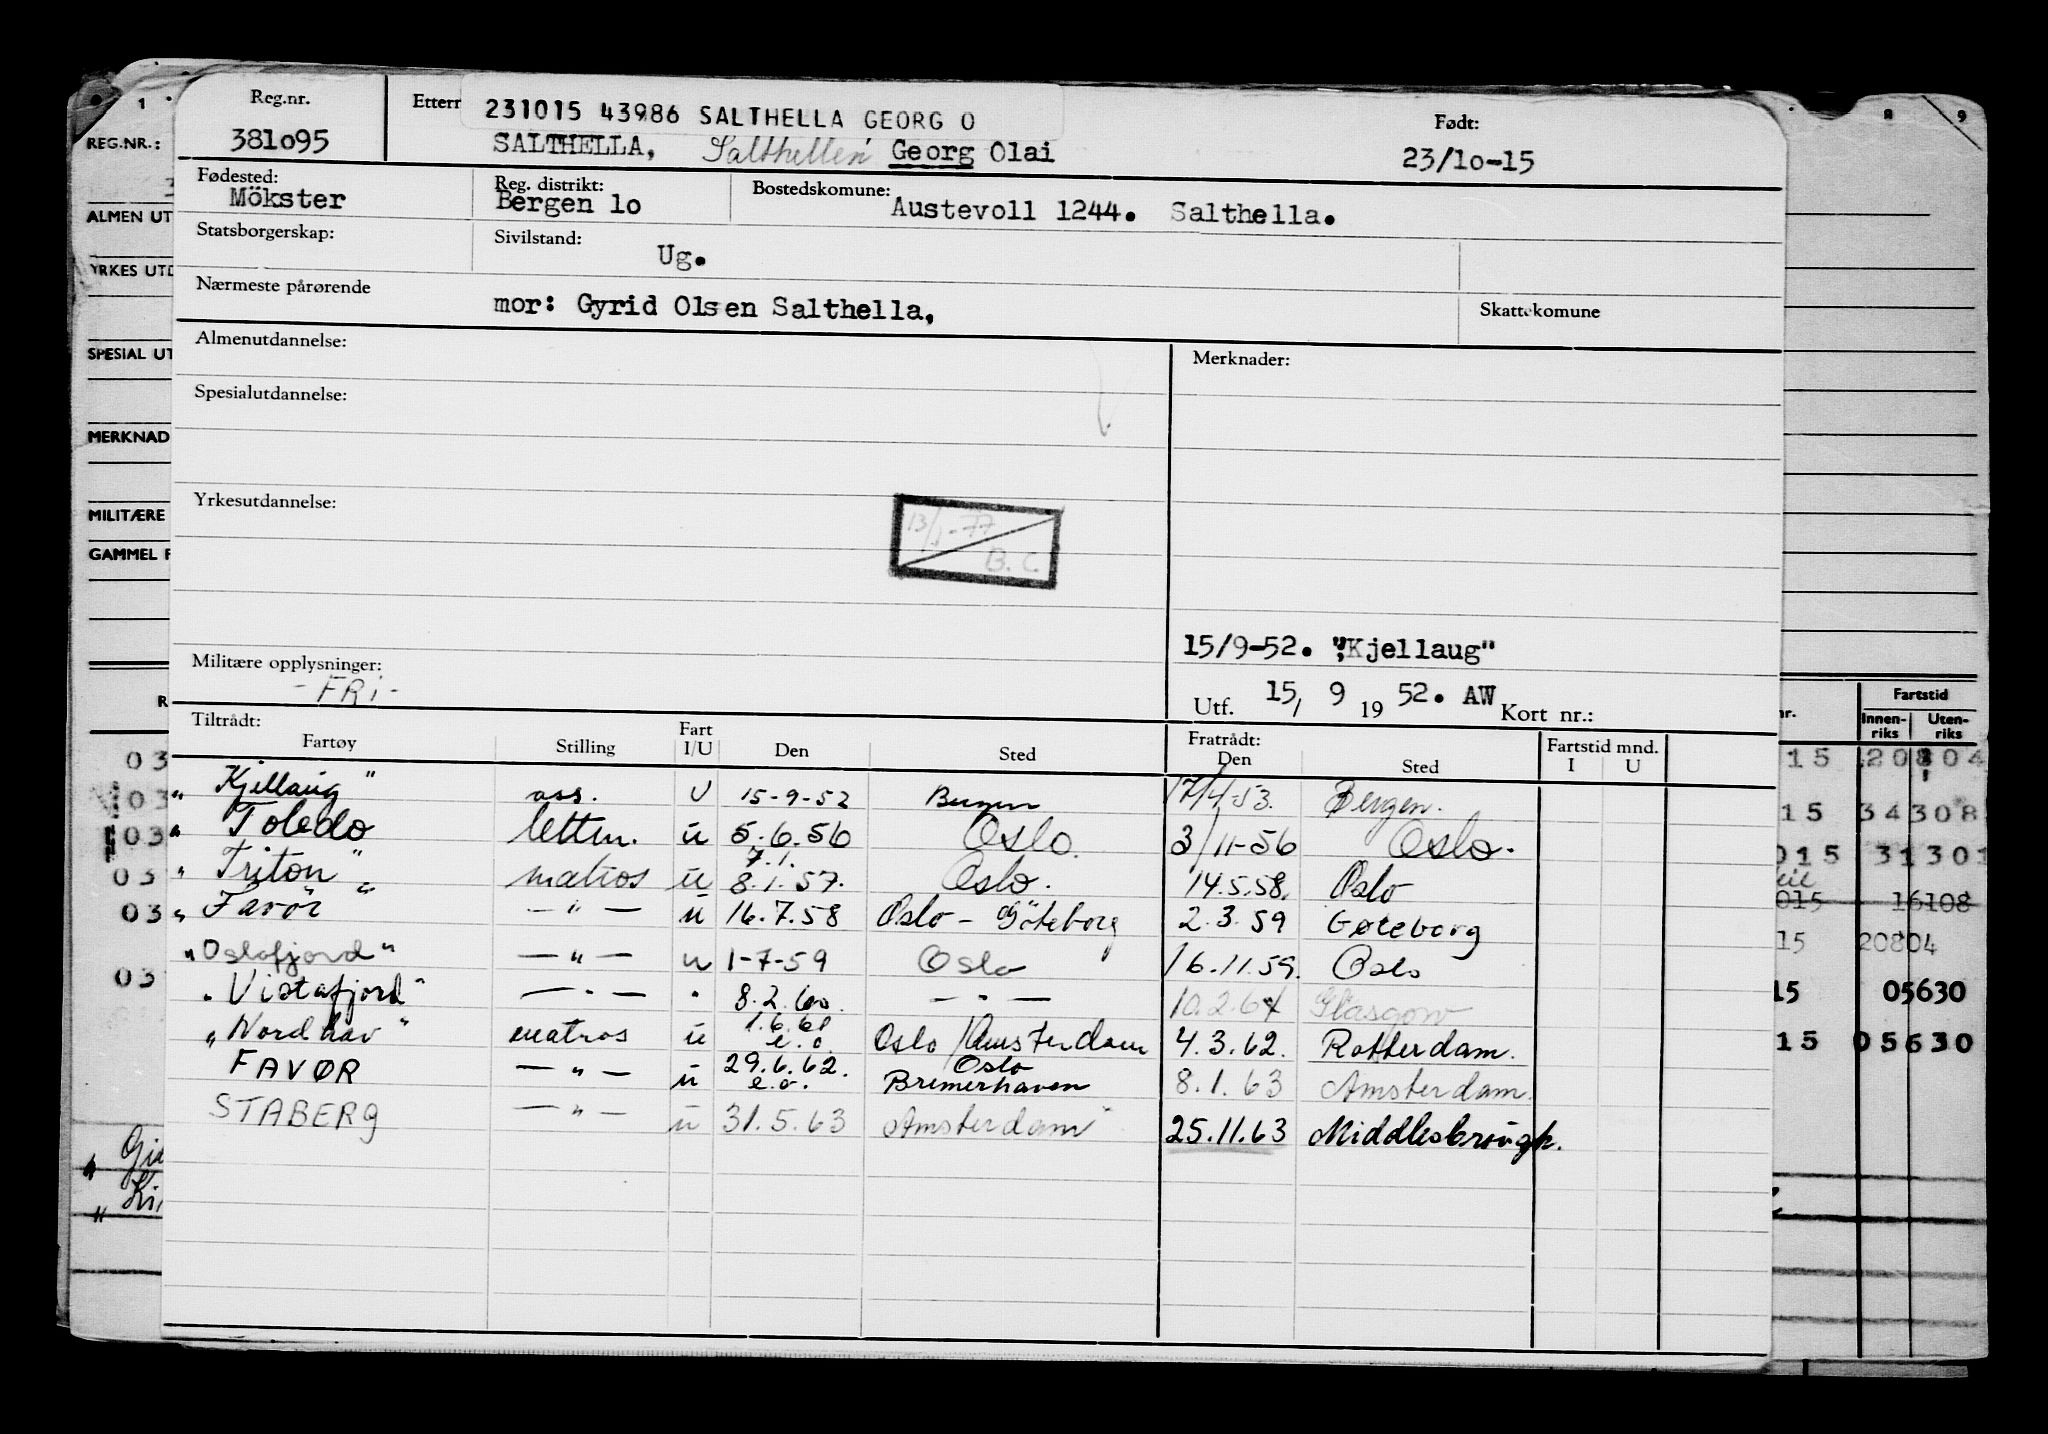 Reg.nr.
Etterr
231015 43986 SALTHELLA GEORG O
Født:
381o95
SALTHELLA, Salthellen Georg Olai
23/1o-15
Fødested:
Mökster
Reg. distrikt:
Bergen lo
Bostedskomune:
Austevoll 1244. Salthella.
Statsborgerskap:
Sivilstand:
Ug.
Nærmeste pårørende
mor: Gyrid Olsen Salthella,
Skattekomune
Almenutdannelse:
Merknader:
Spesialutdannelse:
Yrkesutdannelse:
13/1-77
B.C.
15/9-52. "Kjellaug"
Militære opplysninger:
- FRi -
Utf. 15/ 9 19 52. AW Kort nr.:
Tiltrådt:
Fartøy Stilling Fart I/U Den Sted
Fratrådt:
Den Sted
Fartstid mnd.
I U
" Kjellaug " ass. U 15-9-52 Bergen 17/4-53. Bergen.
" Toledo lettm. u 5.6.56 Oslo. 3/11-56 Oslo.
" Triton " matros u 7.1. 8.1.57. Oslo. 14.5.58. Oslo
" Favör " — " — u 16.7.58 Oslo - Göteborg 2.3.59 Gøteborg
" Oslofjord " — " — u 1-7-59 Oslo 16.11.59. Oslo
" Vistafjord " — " — " 8.2.60. — " — 10.2.61 Glasgow
" Nordhav " matros u 1.6.61 e.o. Oslo / Amsterdam 4.3.62. Rotterdam.
FAVØR — " — u 29.6.62. e.o. Oslo Bremerhaven 8.1.63 Amsterdam.
STABERG — " — u 31.5.63 Amsterdam 25.11.63 Middlesbrough.
1
REG.NR.:
3
ALMEN UT
YRKES UTD
SPESIAL UT
MERKNAD
MILITÆRE
GAMMEL F
R
03
03
03
03
03
03
8 9
nr.
Fartstid
Innen-riks Uten-riks
15 20804
15 34308
015 31301
015 16108
15 20804
15 05630
15 05630